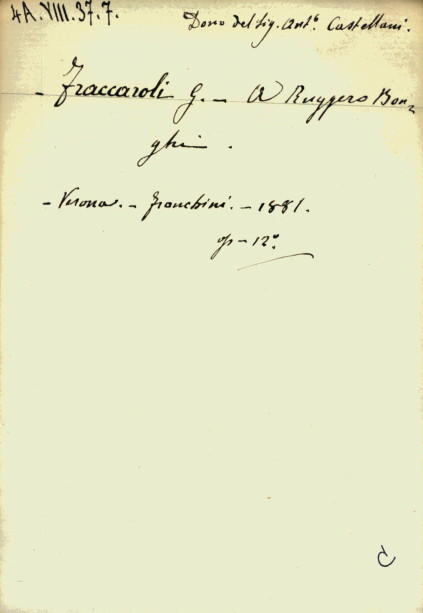 4A.VIII.37.7.
Dono del sig. Ant.º Castellani.
- Fraccaroli G. - A Ruggero Bon-
ghi - .
- Verona. - Franchini. - 1881.
op - 12º.
C